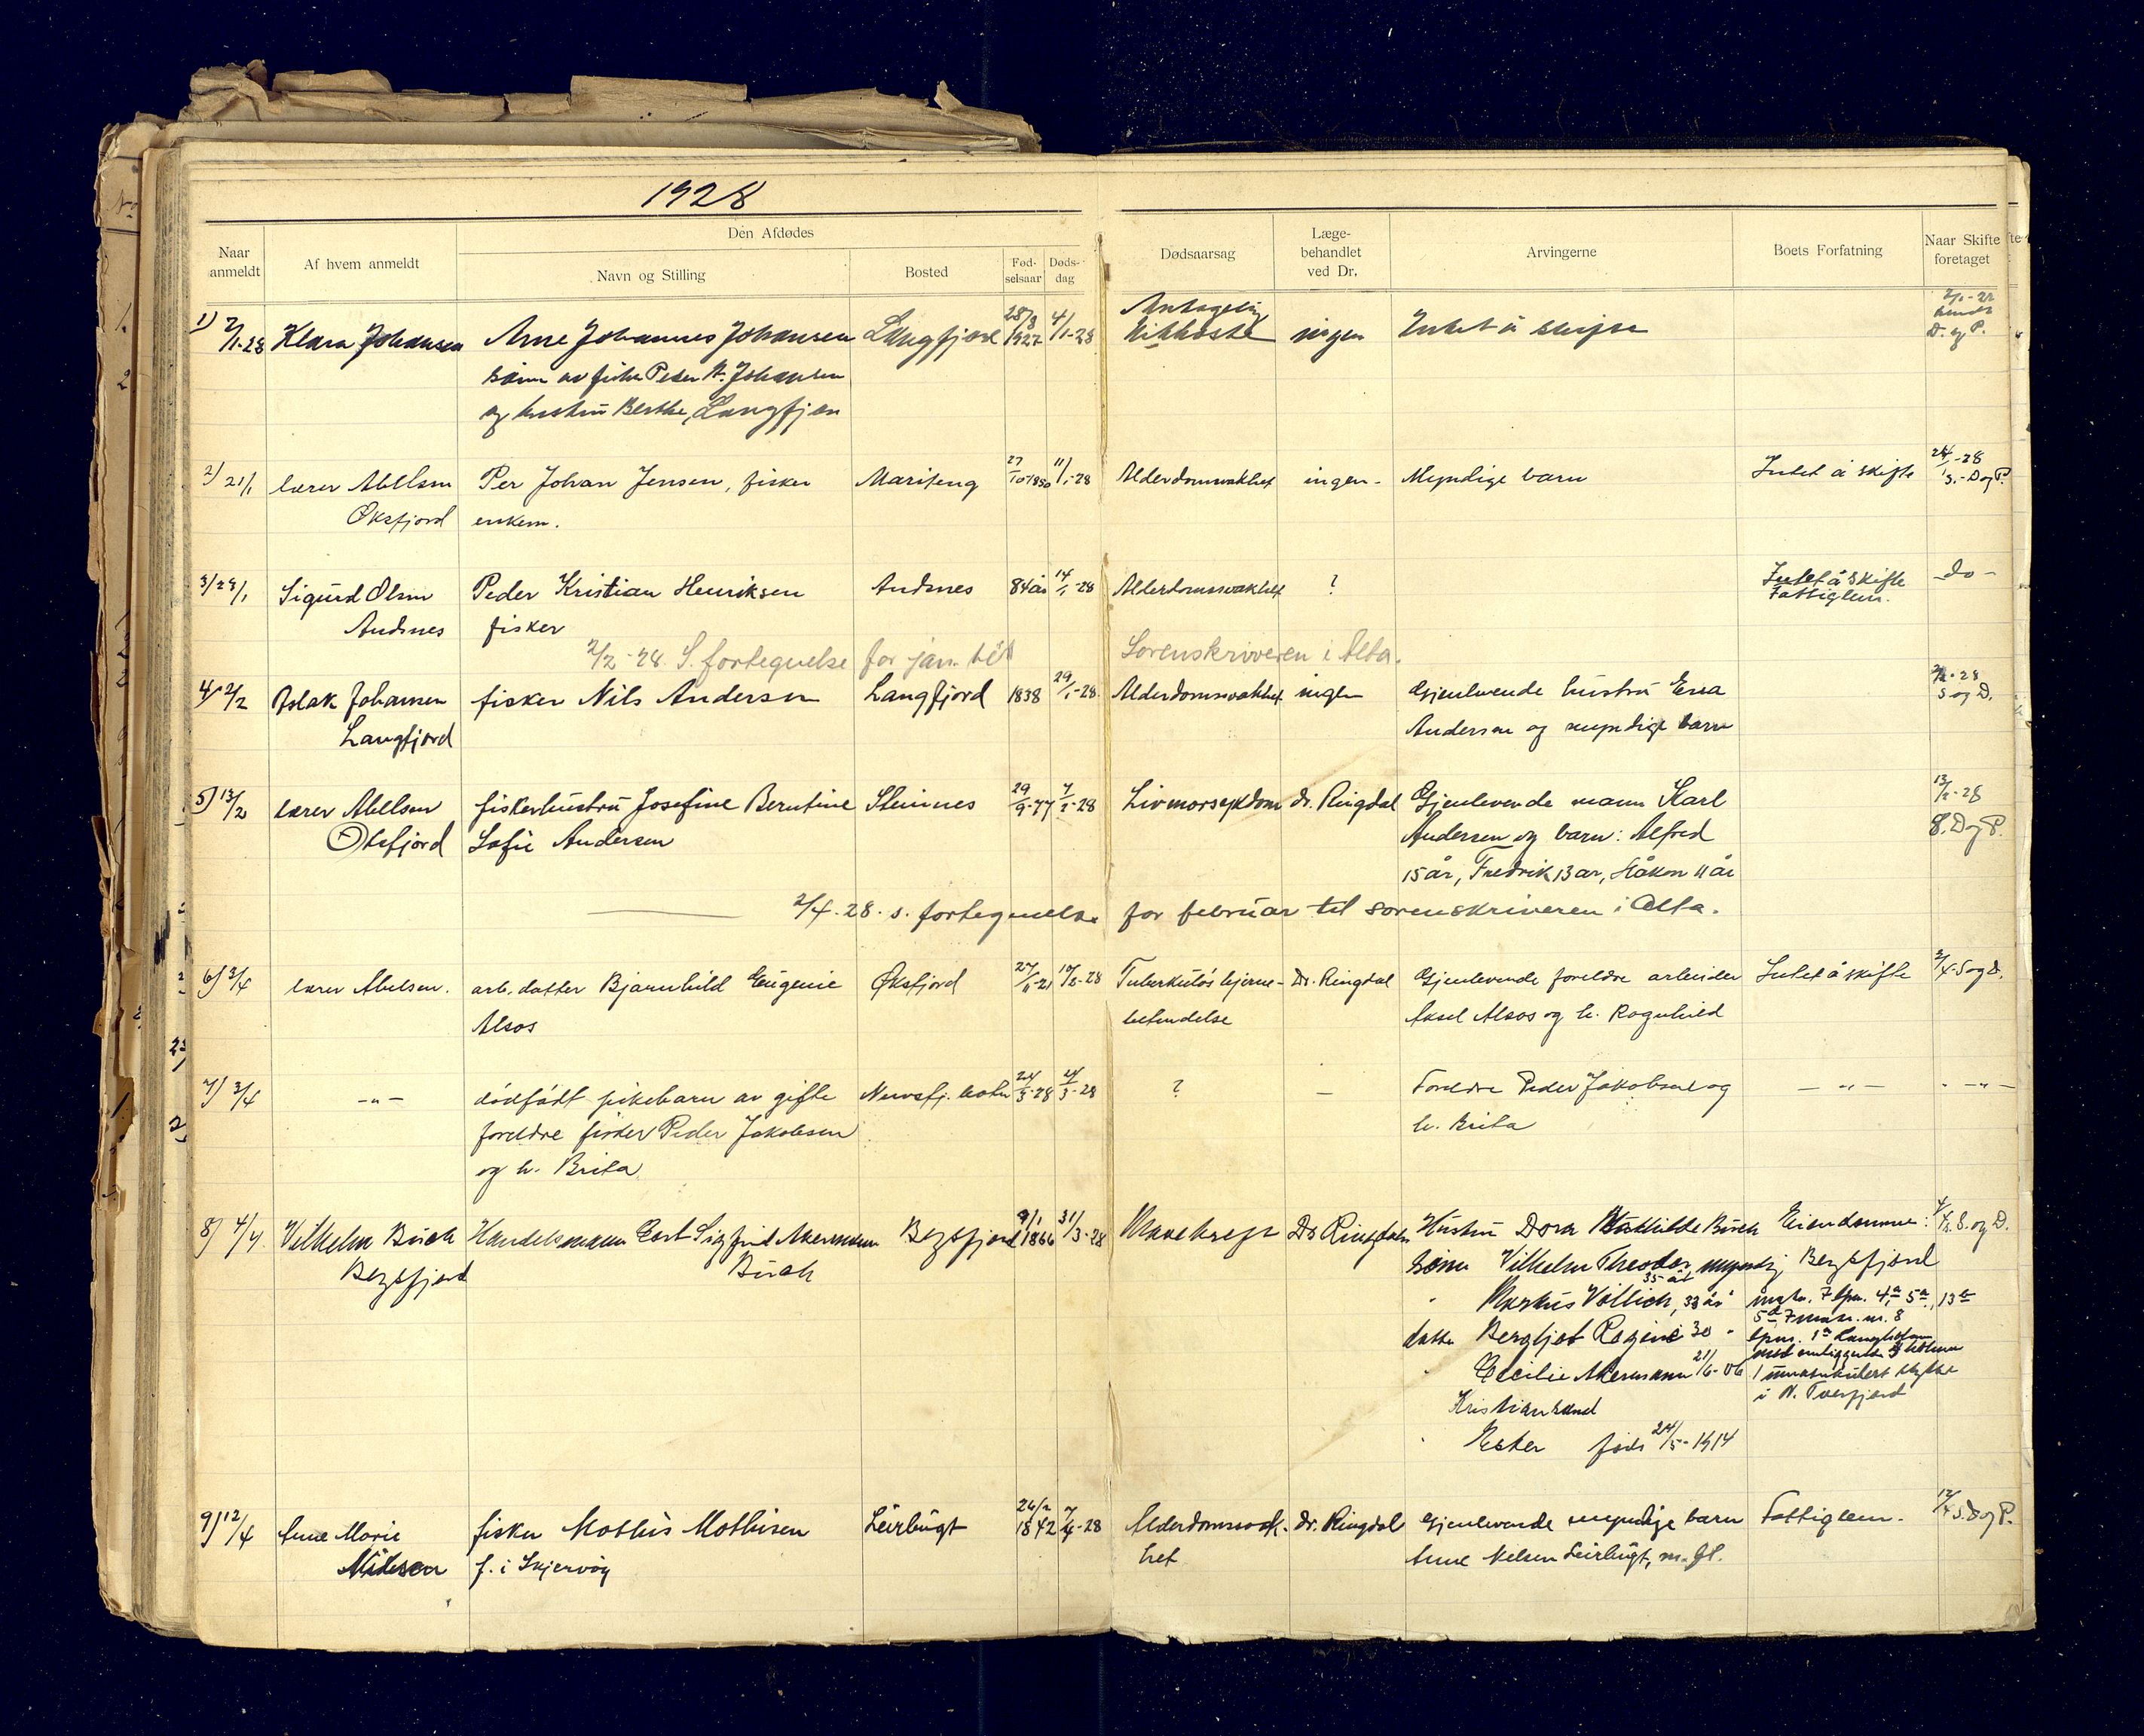 1928
Naar anmeldt
Af hvem anmeldt
Den Afdødes
Navn og Stilling
Bosted
Fød-selsaar
Døds-dag
Dødsaarsag
Læge-behandlet ved Dr.
Arvingerne
Boets Forfatning
Naar Skifte foretaget
1) 7/1-28 Klara Johansen Arne Johannes Johansen Langfjord 28/8 1927 4/1-28 Antagelig ingen Intet å skifte
Kikhoste
sønn av fisker Peder N. Johansen D. og P.
og hustru Berthe, Langfjon
2) 21/1 lærer Abelsen Per Johan Jensen, fisker Mariteng 27/10 1850 11/1-28 Alderdomsvakhet ingen - Myndige barn Intet å skifte 24/1-28
Øksfjord enkem. S.-D og P.
3) 28/1 Sigurd Olsen Peder Kristian Henriksen Andsnes 84 år 14/1-28 Alderdomssvakhet ? Intet å skifte -do-
Andsnes fisker Fattiglem.
2/2-28. S. fortegnelse for jan. til Sorenskriveren i Alta.
4) 2/2 Aslak Johansen fisker Nils Andersen Langfjord 1838 29/1-28 Alderdomssvakhet ingen Gjenlevende hustru Ena 2/2-28
Langfjord Andersen og myndige barn S og D.
5) 13/2 lærer Abelsen fiskerhustru Josefine Berntine Steinnes 29/9-77 7/2-28 Livmorsykdom dr. Ringdal Gjenlevende mann Karl 13/2-28
Øksfjord Sofie Andersen Andersen og barn: Alfred S. D og P.
15 år, Fredrik 13 år, Håkon 11 år
2/4.28. s. fortegnelse for februar til sorenskriveren i Alta.
6) 3/4 lærer Abelsen. arb. datter Bjarnhild Eugenie Øksfjord 27/11-21 19/2-28 Tuberkuløs hjerne- Dr. Ringdal Gjenlevende foreldre arbeider Intet å skifte 3/4. S og D.
Alsos betendelse Aksel Alsos og h. Ragnhild
7) 3/4 -"- dødfødt pikebarn av gifte Nuvsfj. botn 24/3-28 24/3-28 ? - Foreldre Peder Jakobsen og -"- -"-
foreldre fisker Peder Jakobsen h. Brita
og h. Brita
8) 4/4 Vilhelm Buch Handelsmann Carl Sigfrid Akermann Bergsfjord 9/1 1866 31/3-28 Mavekreft Dr Ringdal Hustru Dora Mathilde Buch Eiendomme: 4/4. S. og D.
Bergsfjord Buch Sønn Vilhelm Theodor myndig Bergsfjord
35 år
" Markus Vollich, 33 år
datter Bergljot Ragine 30 "
" Cecilie Akermann 21/6-06 1 umatrikulert stykke
Kristiansand i N. Tverfjord
" Ester født 24/5-1914
9) 12/4 Anne Marie fisker Mathis Mathisen Leirbugt 26/2 1842 7/4-28 Alderdomssvak- dr. Ringdal Gjenlevende myndige barn Fattiglem. 12/4 S. D og P.
Nilsen f. i Skjervøy het Anne Nilsen Leirbugt, m. fl.